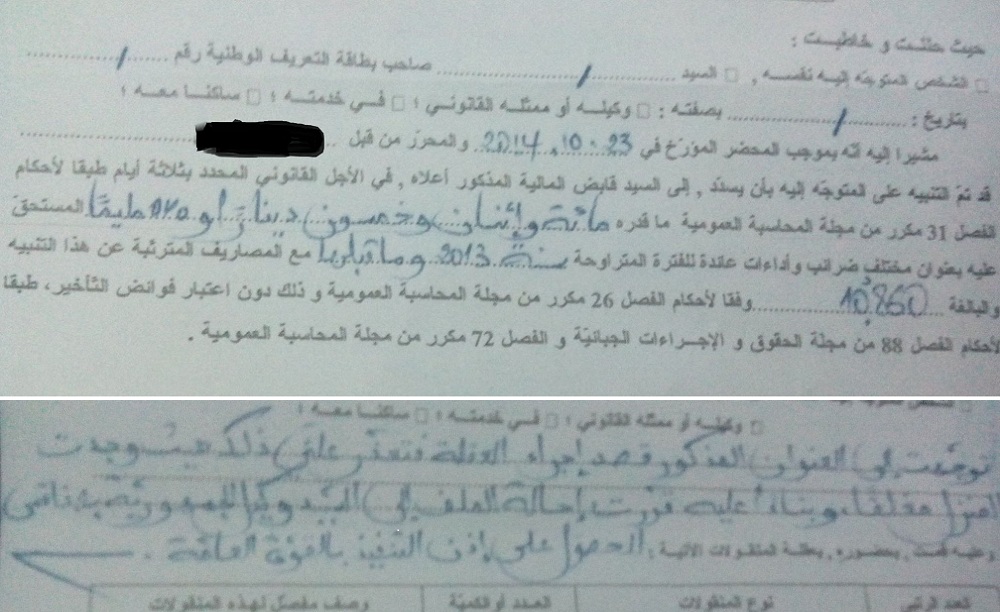 حيث حللت و خاطبت :
□ الشخص المتوجه إليه نفسه , □ السيد ......../........ صاحب بطاقة التعريف الوطنية رقم ......../........
بتاريخ : ......../........ بصفته : □ وكيله أو ممثله القانوني ؛ □ في خدمته ؛ □ ساكنا معه ؛
مشيرا إليه أنه بموجب المحضر المؤرخ في 23.10.2014 والمحرر من قبل
قد تمّ التنبيه على المتوجه إليه بأن يسدّد , إلى السيد قابض المالية المذكور أعلاه , في الأجل القانوني المحدد بثلاثة أيام طبقا لأحكام
الفصل 31 مكرر من مجلة المحاسبة العمومية ما قدره مائة وإثنان وخمسون دينارا و مليما المستحقّ
عليه بعنوان مختلف ضرائب وأداءات عائدة للفترة المتراوحة سنة 2013 وما قبلها مع المصاريف المترتبة عن هذا التنبيه
والبالغة 10,860 وفقا لأحكام الفصل 26 مكرر من مجلة المحاسبة العمومية و ذلك دون اعتبار فوائض التأخير، طبقا
لأحكام الفصل 88 من مجلة الحقوق و الإجراءات الجبائية و الفصل 72 مكرر من مجلة المحاسبة العمومية .
□ وكيله أو ممثله القانوني ؛ □ في خدمته ؛ □ ساكنا معه ؛
توجهت إلى العنوان المذكور قصد إجراء العقلة فتعذر علي ذلك حيث وجدت
المنزل مغلقا وبناء عليه قررت إحالة الملف إلى السيد وكيل الجمهورية
وعليه قمت , بحضوره , بعقلة المنقولات الآتية : الحصول على إذن التنفيذ بالقوة العامة .
العدد الرتبي نوع المنقولات العدد أو الكميّة وصف مفصل لهذه المنقولات